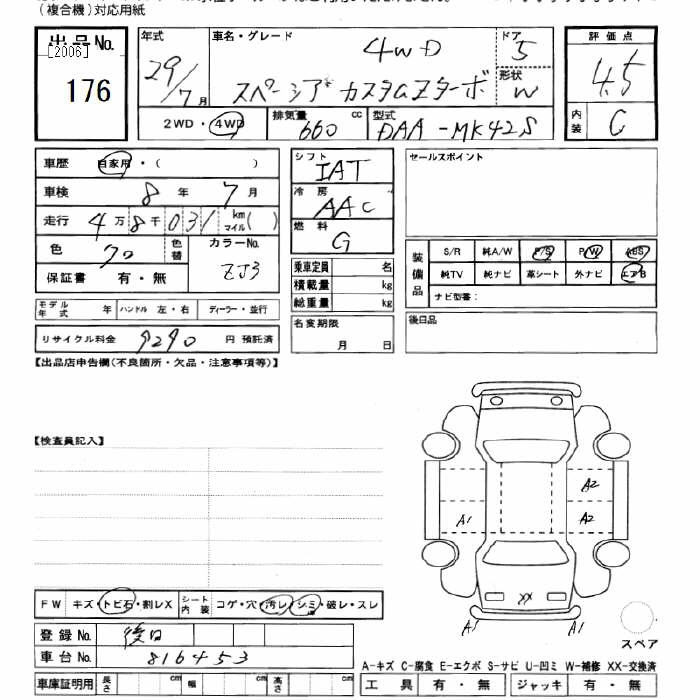 (複合機)対応用紙
出品No. 年式 車名・グレード 4WD ドア 5 評価点
[2006] 29/7月 スペーシア カスタムZターボ 形状 W 4.5
176 2WD・4WD 排気量 660 cc 型式 DAA-MK42S 内装 C
車歴 自家用・( ) シフト IAT セールスポイント
車検 8年 7月 冷房 AAC
走行 4万8千031 km マイル( ) 燃料 G
色 クロ 色替 カラーNo. ZJ3
装備品 S/R 純A/W P/S P/W ABS
純TV 純ナビ 革シート 外ナビ エアB
ナビ型番:
保証書 有・無
乗車定員 名
積載量 kg
総重量 kg
モデル年式 年 ハンドル 左・右 ディーラー・並行
名変期限 月 日
後日品
リサイクル料金 9290 円 預託済
【出品店申告欄(不良箇所・欠品・注意事項等)】
【検査員記入】
A2
A1 A2
XX
A1 A1
スペア
FW キズ・トビ石・割レX シート内装 コゲ・穴・汚レ・シミ・破レ・スレ
登録No. 後日
車台No. 816453
A-キズ C-腐食 E-エクボ S-サビ U-凹ミ W-補修 XX-交換済
車庫証明用 長さ cm 幅 cm 高さ cm 工具 有・無 ジャッキ 有・無